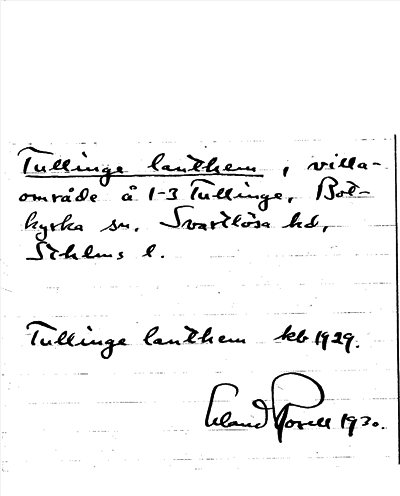 Tullinge lanthem, villa-
område å 1-3 Tullinge, Bot-
kyrka sn. Svartlösa hd,
Sthlms l.
Tullinge lanthem kb 1929.
Erland Rosell 1930.